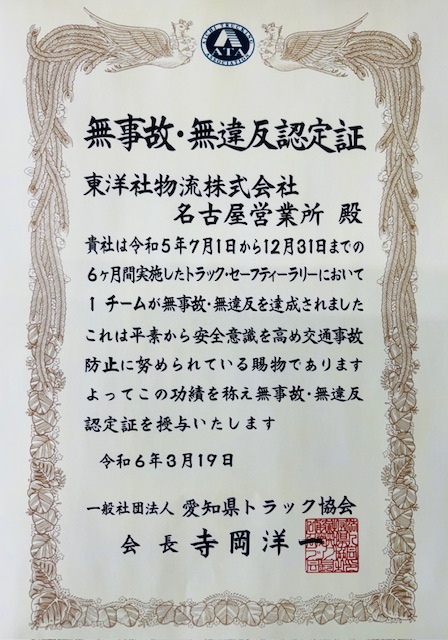 AICHI TRUCKING
ATA
ASSOCIATION
無事故・無違反認定証
東洋社物流株式会社
名古屋営業所 殿
貴社は令和5年7月1日から12月31日までの
6ヶ月間実施したトラック・セーフティーラリーにおいて
1チームが無事故・無違反を達成されました
これは平素から安全意識を高め交通事故
防止に努められている賜物であります
よってこの功績を称え無事故・無違反
認定証を授与いたします
令和6年3月19日
一般社団法人 愛知県トラック協会
会長 寺岡洋一